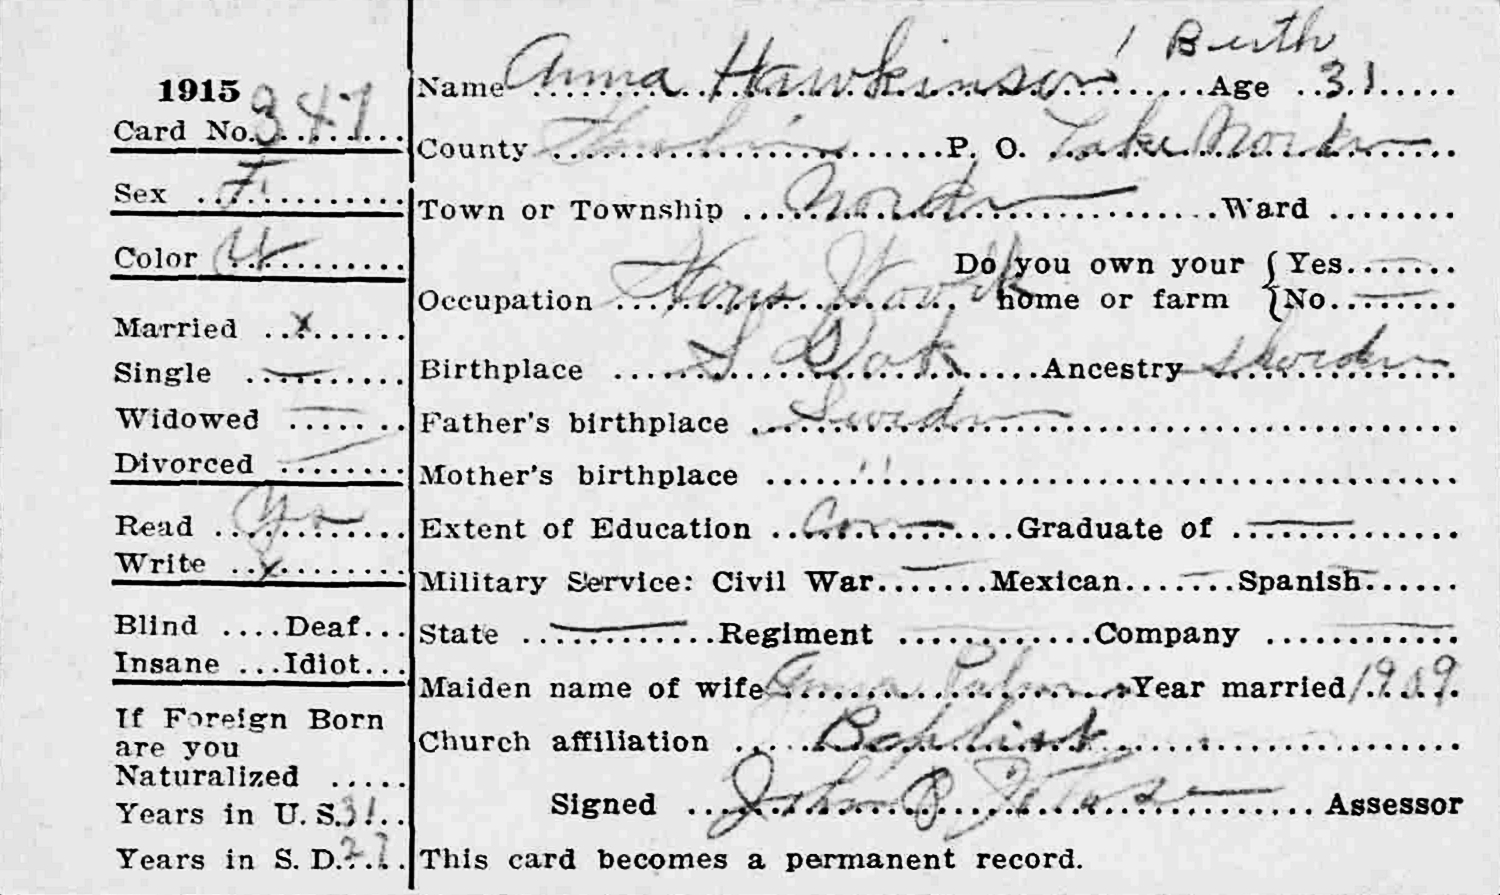 1 Birth
1915 Name Anna Hawkinson Age 31
Card No. 347
County Hamlin P. O. Lake Norden
Sex F.
Town or Township Norden Ward
Color W
Do you own your home or farm { Yes
Occupation Hous { No
Married x
Birthplace S Dak Ancestry
Single —
Widowed —
Father's birthplace Sweden
Divorced —
Mother's birthplace "
Read Yes
Extent of Education Com Graduate of —
Write x
Military Service: Civil War — Mexican — Spanish —
Blind Deaf
State — Regiment — Company —
Insane Idiot
Maiden name of wife Anna Year married 1909
If Foreign Born
are you
Naturalized
Church affiliation Baptist
Years in U. S. 31
Signed John Assessor
Years in S. D.
This card becomes a permanent record.